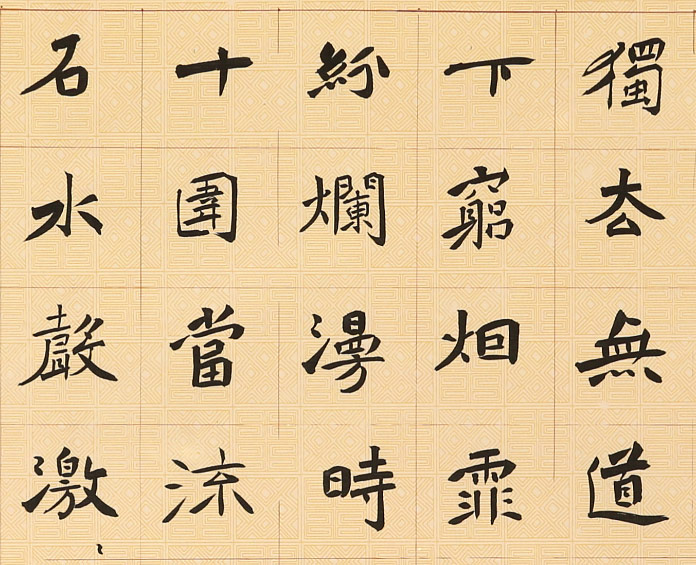 獨去無道
下窮烟霏
紛爛漫時
十圍當流
石水聲激〻